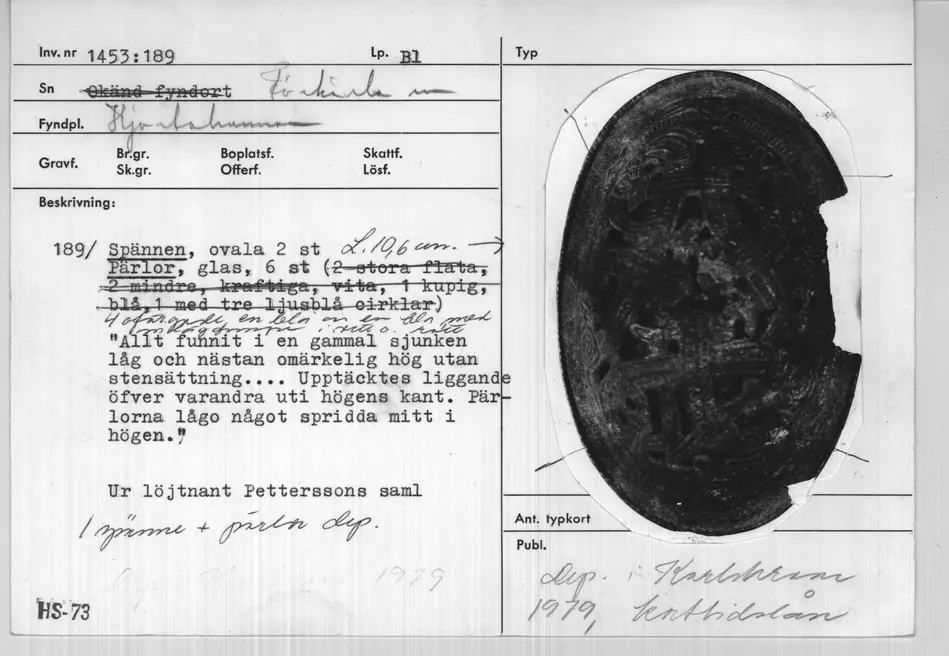 Inv. nr 1453:189
Lp. Bl
Typ
Sn Okänd fyndort Förkärla sn
Fyndpl. Hjortahammar
Gravf. Br.gr. Boplatsf. Skattf.
Sk.gr. Offerf. Lösf.
Beskrivning:
189/ Spännen, ovala 2 st L. 10,6 cm. →
Pärlor, glas, 6 st (2 stora flata,
2 mindre, kraftiga, vita, 1 kupig,
blå, 1 med tre ljusblå cirklar)
4 ofärgade en blå en blå med
i vitt o. rött
"Allt funnit i en gammal sjunken
låg och nästan omärkelig hög utan
stensättning.... Upptäcktes liggande
öfver varandra uti högens kant. Pär-
lorna lågo något spridda mitt i
högen."
Ur löjtnant Petterssons saml
1 spänne + pärlor dep.
1979
HS-73
Ant. typkort
Publ.
Dep. i Karlskrona
1979, korttidslån